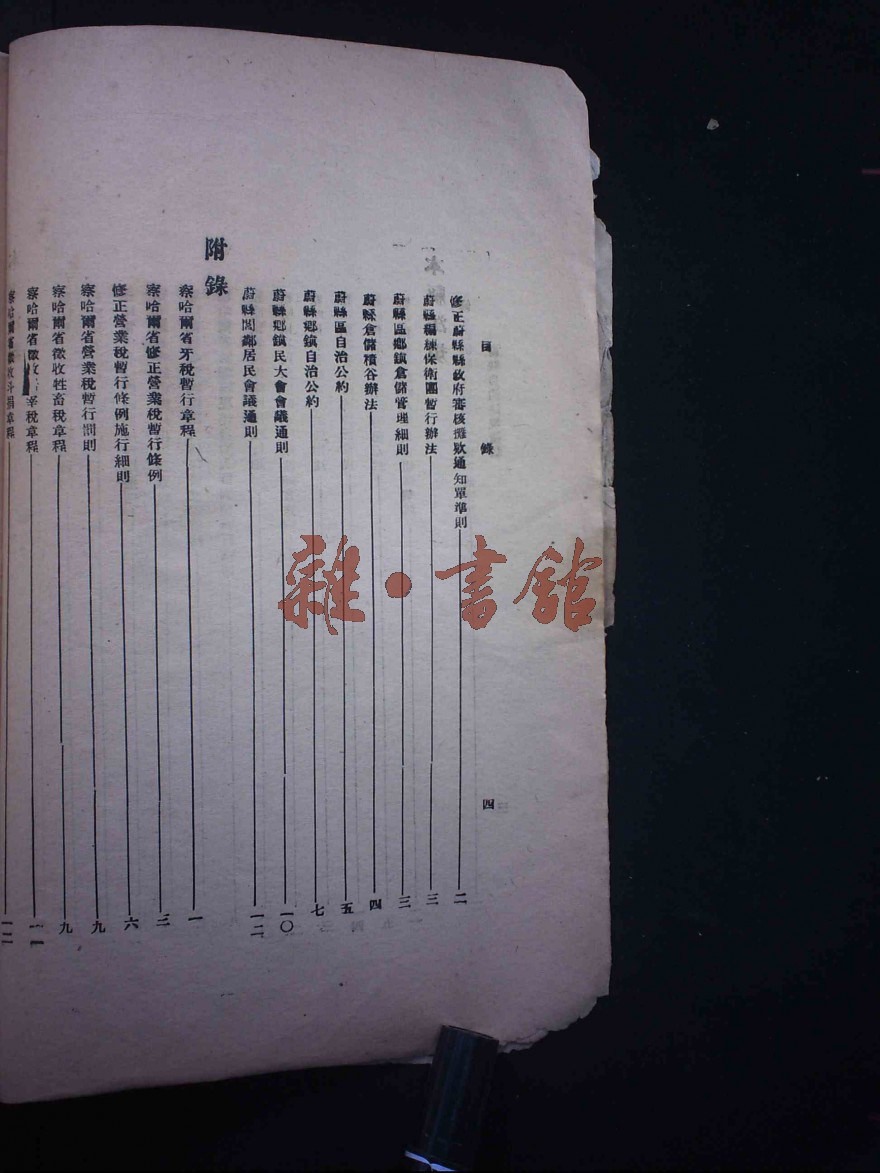 目錄 四
修正蔚縣縣政府審核攤欵通知單準則 二
蔚縣編練保衛團暫行辦法 三
蔚縣區鄉鎮倉儲管理細則 三
蔚縣倉儲積谷辦法 四
蔚縣區自治公約 五
蔚縣鄉鎮自治公約 七
蔚縣鄉鎮民大會會議通則 一〇
蔚縣閭鄰居民會議通則 一二
附錄
察哈爾省牙稅暫行章程 一
察哈爾省修正營業稅暫行條例 三
修正營業稅暫行條例施行細則 六
察哈爾省營業稅暫行罰則 九
察哈爾省徵收牲畜稅章程 九
察哈爾省徵收宰稅章程 一一
察哈爾省徵收斗捐章程 一二
雜·書館